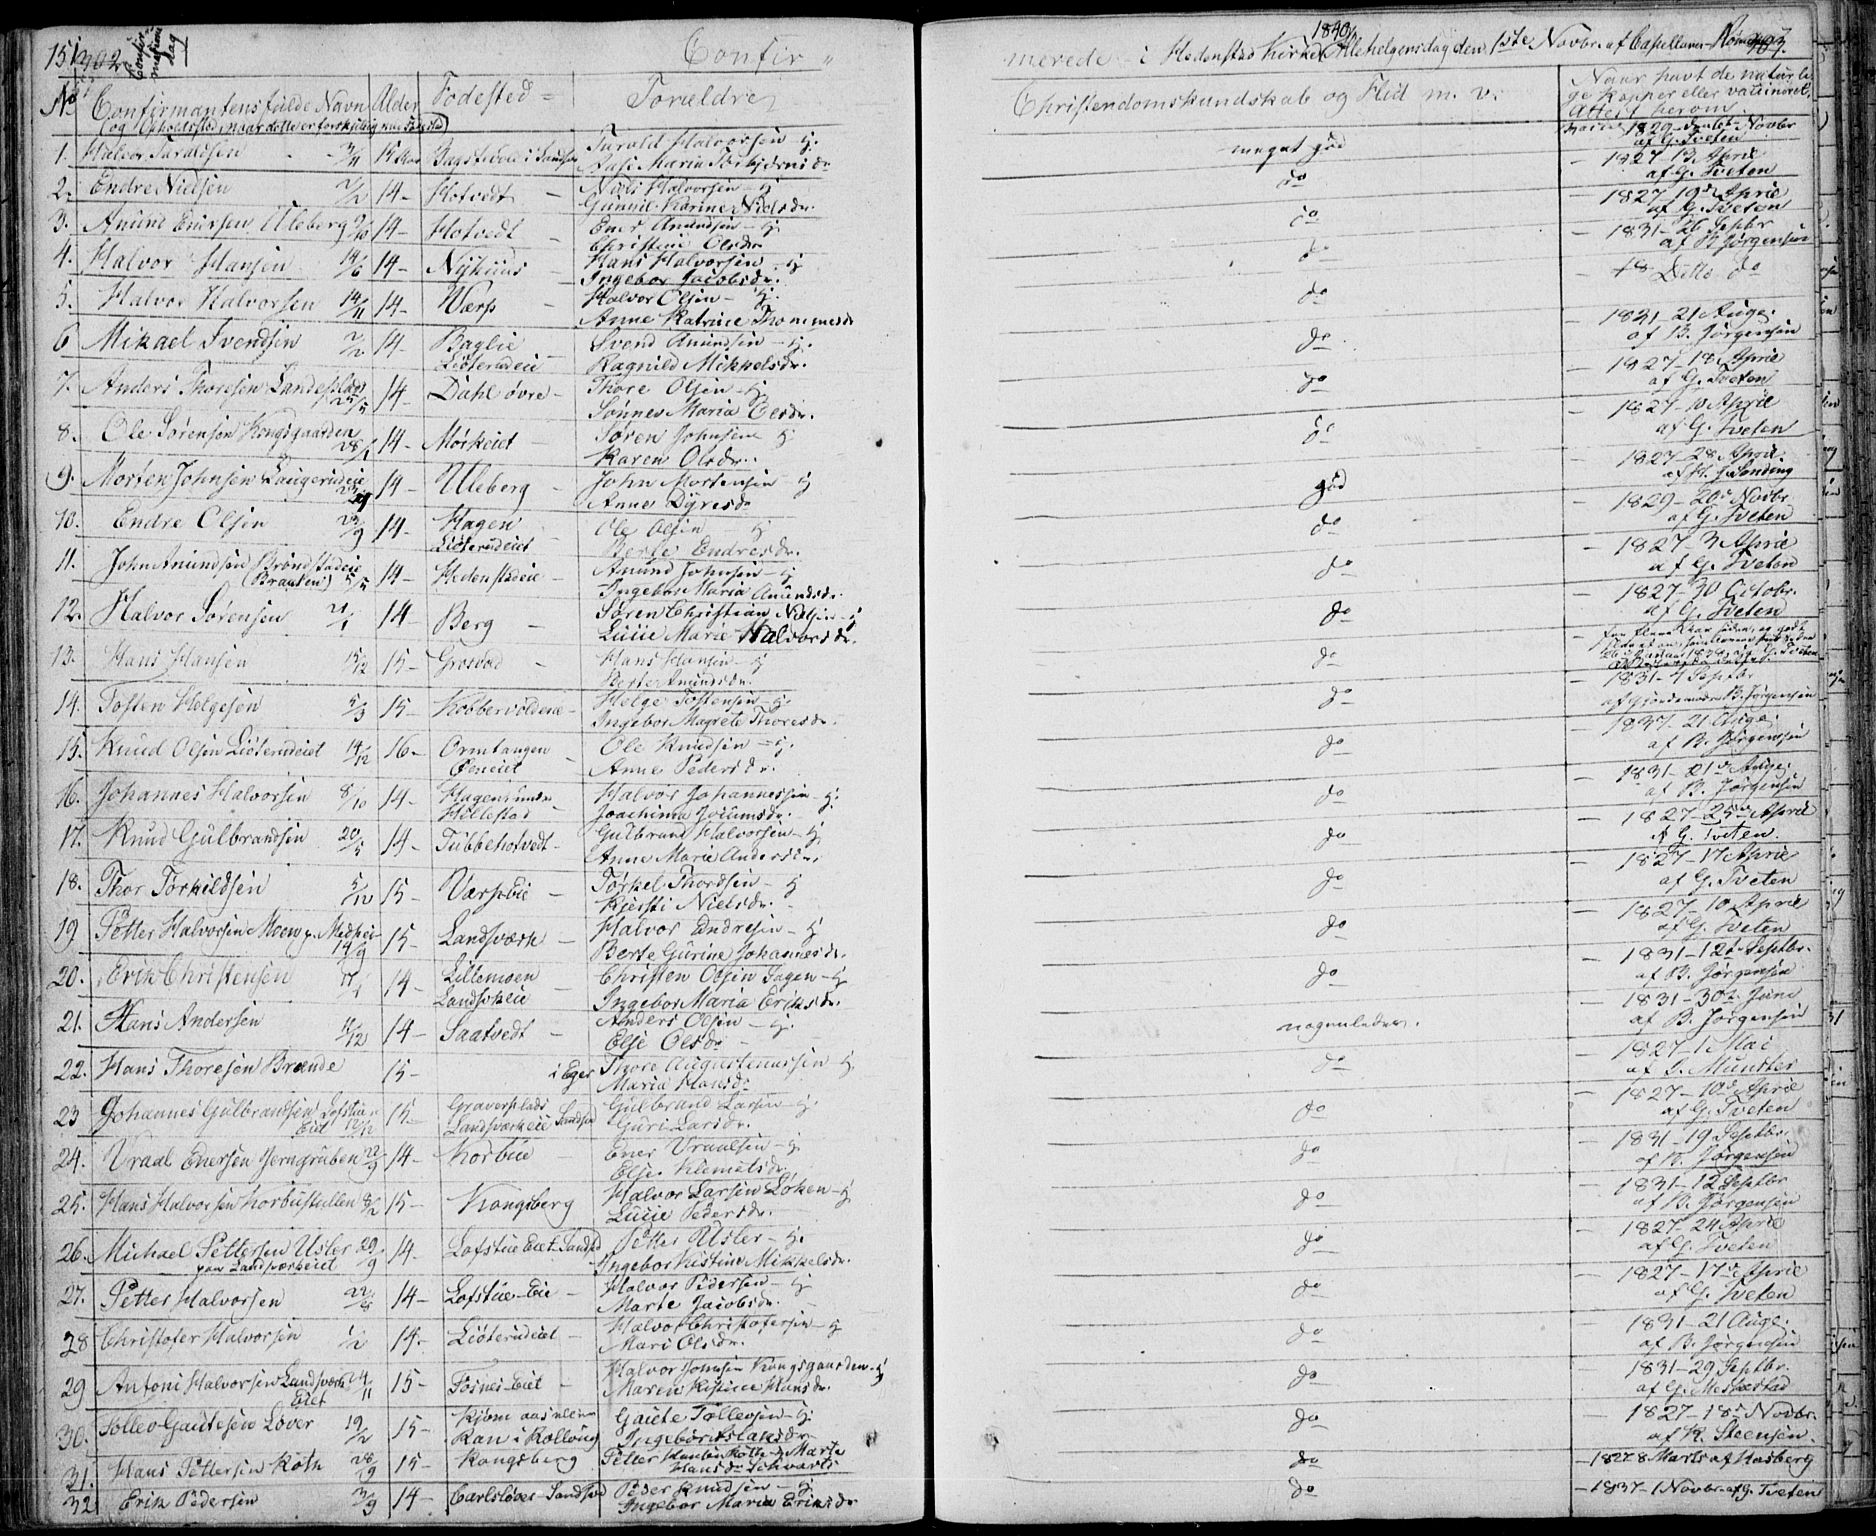 151
302
Confirmations Dag
Confir-
No
Confirmantens fulde Navn
(og Opholdssted, naar dette er forskjellig fra Fødested)
Alder
Fødested
Forældre
1. Halvor Taraldsen 3/11 15 Aar Bagstevold i Sandsv Tarald Halvorsen - Hj
Aase Maria Torbjørnsdr
2. Endre Nielsen 2/12 14 - Hotvedt - Niels Halvorsen - Hj
Gunnil Karine Nielsdr.
3. Anund Enersen Uleberg 9/10 14 - Hotvedt - Ener Anundsen - Hj
Christine Olsdr
4. Halvor Hansen 14/6 14 - Nyhuus - Hans Halvorsen - Hj
Ingebor Jacobsdr.
5. Halvor Halvorsen 14/11 14 - Værp - Halvor Olsen - Hj.
Anne Katrine Thommesdr
6 Mikael Svendsen 2/2 14 - Baglie
Liøterudeie - Svend Anundsen - Hj.
Ragnild Mikkelsdr.
7. Anders Thoresen Landesplads 25/5 14 - Dahl øvre - Thore Olsen - Hj
Sønnes Maria Olsdr.
8. Ole Sørensen Kongsgaarden 28/1 14 - Mørkeiet - Søren Johnsen Hj
Karen Olsdr.
9. Morten Johnsen Laugerudeie 14 - Uleberg - John Mortensen - Hj
Anne Dyresdr
10. Endre Olsen 23/9 14 - Hagen
Liøterudeiet - Ole Olsen - Hj
Berte Endresdr.
11. John Anundsen Brøndstadeie
(Brauten) 5/5 14 - Hedenstadeie - Anund Johnsen - Hj
Ingebor Maria Anundsdr.
12. Halvor Sørensen 21/1 14 - Berg - Søren Christian Nielsen - Hj
Lucie Marie Halvorsdr.
13. Hans Hansen 15/12 15 - Grosvold - Hans Hansen - Hj
Berte Anundsdr.
14. Tosten Helgesen 5/3 15 - Kobbervoldeie - Helge Tostensen - Hj.
Ingebor Magrete Thoresdr.
15. Knud Olsen Liøterudeiet 14/12 16 - Ormtangen
Eeneiet - Ole Knudsen - Hj.
Anne Pedersdr.
16. Johannes Halvorsen 8/10 14 - Hagen undr
Hillestad - Halvor Johannessen - Hj.
Joachima Joiumsdr.
17. Knud Gulbrandsen 20/5 14 - Tubbehotvedt - Gulbrand Halvorsen - Hj
Anne Marie Andersdr.
18. Thor Torkildsen 5/10 15 - Værpeie - Torkel Thordsen - Hj
Kjersti Nielsdr.
19 Petter Halvorsen Moen p. Medhei 14/9 15 - Landsværk - Halvor Endresen - Hj
Berte Gurine Johannesdr.
20. Erik Christensen 17/1 14 - Lillemoen
Landsvkeie - Christen Olsen Fagen - Hj
Ingebor Maria Eriksdr.
21. Hans Andersen 11/12 14 - Saatvedt - Anders Olsen - Hj.
Elje Olsdr
22. Hans Thoresen Brænde 15 - i Eger Thore Augustinussen Hj.
Maria Hansdr
23 Johannes Gulbrandsen Lofstue
Eiet 12/12 15 - Graverplads
Landsværkeie Sandsv Gulbrand Larsen - Hj.
Guri Larsdr.
24. Vraal Enersen Jerngruben 22/9 14 - Korbue - Ener Vraalsen - Hj
Elje Klemetsdr.
25. Hans Halvorsen Korbuestuen 8/2 15 - Kongsberg Halvor Larsen Løken - Hj
Lucie Pedersdr.
26. Michael Pettersen Usler
paa Landsværkeiet 29/9 14 - Lofstue Eiet Sandsv Petter Usler - Hj.
Ingebor Kistine Mikkelsdr.
27. Petter Halvorsen 14 - Lofstue-Eie - Halvor Pedersen - Hj
Marte Jacobsdr.
28 Christofer Halvorsen 1/12 14 - Liøterudeiet - Halvor Christofersen - Hj
Mari Olsdr.
29 Antoni Halvorsen Landsværk
Eiet 24/11 15 - Fosnes-Eiet - Halvor Jonsen Kongsgaarden - Hj
Maren Kistine Hansdr.
30. Tollev Gautesen Løver 19/2 15 - i Kollong Gaute Tollevsen - Hj.
31. Hans Pettersen Roth 28/9 15 - Kongsberg Petter Hansen Roth - Marte
Hansdr Schvarts
32 Erik Pedersen 3/9 14 - Carlsløver Sandsvd Peder Knudsen - Hj
Ingebor Maria Eriksdr
1840
merede - i Hedenstad Kirke Allehelgensdag den 1ste Novbr. af Capellanen
303.
Christendomskundskab og Flid m. v.
Naar havt de naturlige Kopper eller vaccineret, Attest herom.
meget god
1829 - Novbr
af G. Tveten
do - 1827 13 April
af G. Tveten
do - 1827 19de April
af G. Tveten
do - 1831 - 26 Septbr
af B. Jørgensen
do - Ditto do
do - 1831 - 21 Aug.
af B. Jørgensen
do - 1827 - 18 April
af G. Tveten
do - 1827 - 10 April
af G. Tveten
god - 1827 - 28 April
do - 1829 - 20de Novbr
af G. Tveten
do - 1827 3 April
af G. Tveten
do - 1827 - 30 Octobr.
af G. Tveten
do -
do - 1831 - 4 Septbr
af Gjordemoder B. Jørgensen
do - 1837 - 21 Aug.
af B. Jørgensen
do - 1831 - 21de Aug.
af B. Jørgensen
do - 1827 - 25de April
af G. Tveten.
do - 1827 - 17 April
af G. Tveten
do - 1827 - 10 April
af G. Tveten
do - 1831 - 12te Septbr.
af B. Jørgensen
nogenledes. - 1831 - 30te Juni
af B. Jørgensen
do - 1827 1 Mai
af G. Münster
do - 1827 - 10de April
af G. Tveten
do - 1831 - 19 Septbr.
af B. Jørgensen
do - 1831 - 12 Septbr
af B. Jørgensen
do - 1827 - 24 April
af G. Tveten
do - 1827 - 17de April
af G. Tveten
do - 1831 - 21 Aug.
af B. Jørgensen
do - 1831 - 29 Septbr.
do - 1827 - 18de Novbr.
af K. Steensen.
do - 1827 8 Marts af Hasberg
do - 1837 - 1 Novbr. af G. Tveten